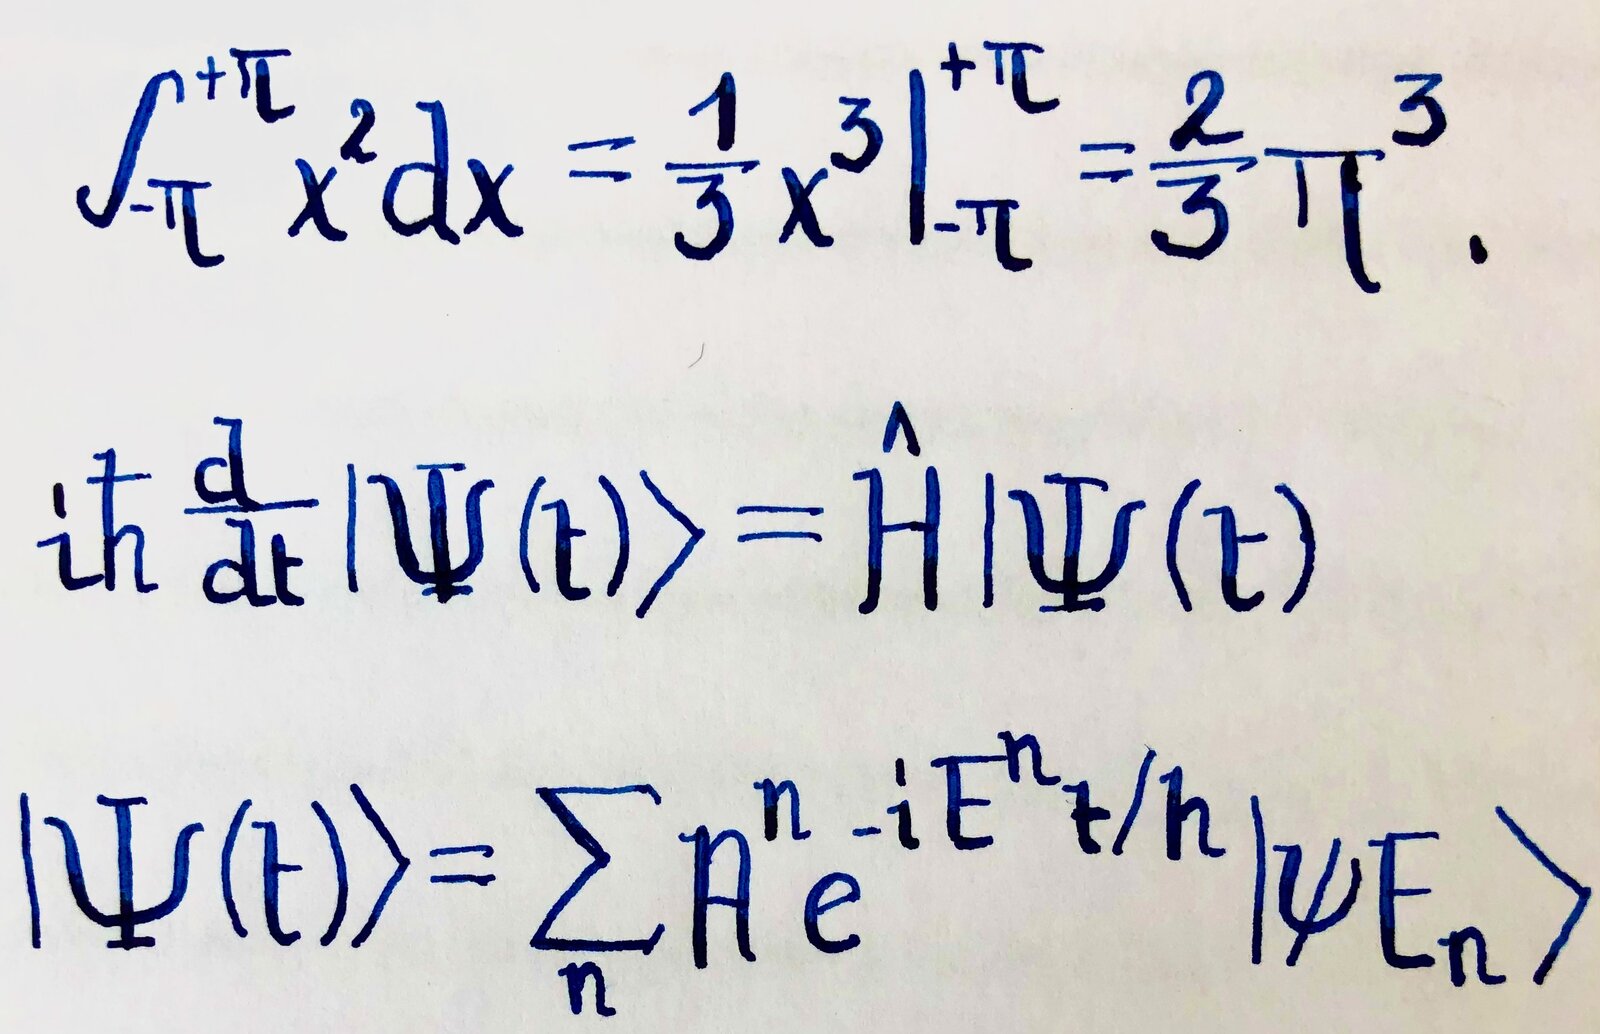 ∫_{-π}^{+π} x²dx = \frac{1}{3} x³ |_{-π}^{+π} = \frac{2}{3} π³ .
iħ \frac{d}{dt} |Ψ(t)⟩ = Ĥ|Ψ(t)
|Ψ(t)⟩ = ∑_{n} A^{n} e^{-iE^{n}t/h} |ψE_{n}⟩